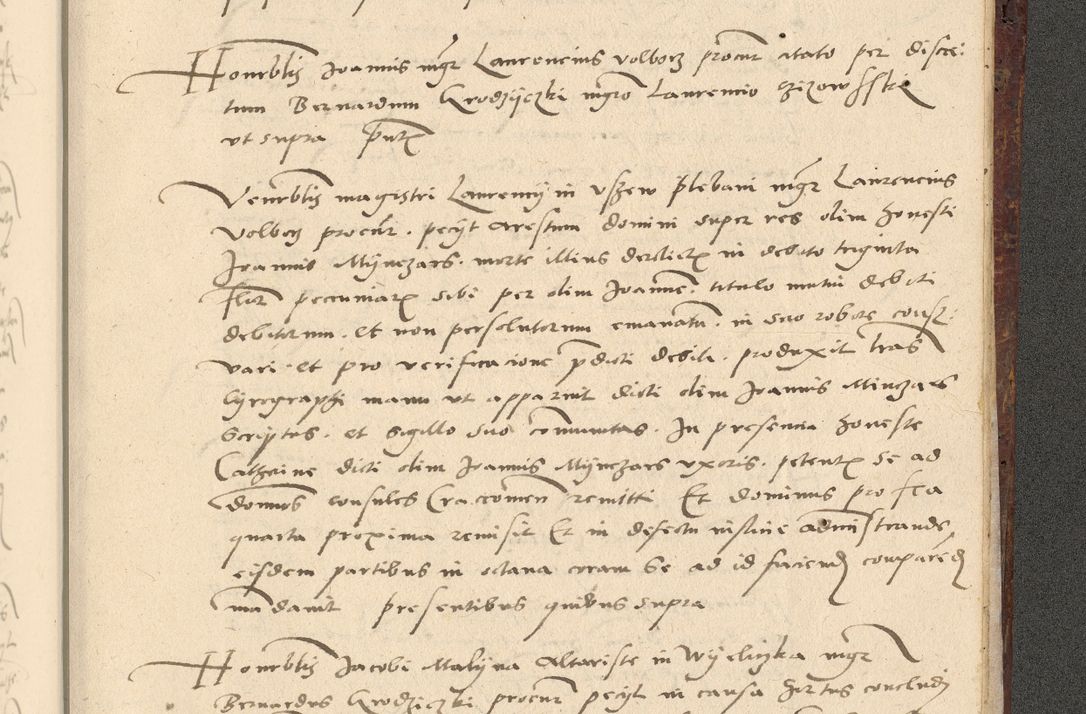 Honorblis Joannis mgr Laurencius volborz procur citato per discre:
tum Bernardum Grodzyczki mgro Laurencio
ut supra pntr
Venerblis magistri Laurency in Vszew plebani mgr Laurencius
Volborz procur. pecyt arestum domini super res olim honesti
Joannis Mynczars. morte illius derelictr in debito triginta
flor pecuniarr sibi per olim Joannem. titulo mutui debiti
debitorum. et non persolutorum emanatum. in suo robore conser:
vari. et pro verificacione pdicti debiti. produxit lras
cyrographi manu ut apparuit dicti olim Joannis Minczars
scriptas. et sigillo suo communitas. In presencia honeste
Catherine dicti olim Joannis Mynczars uxoris. petentr se ad
domnos consules Craccovien remitti Et dominus pro feria
quarta proxima remisit Et in defectu iusticie administrande
eisdem partibus in octava coram se ad id faciend comparend
mandavit presentibus quibus supra
Honorblis Jacobi Malyna Altariste in Wyeliczka mgr
Bernardus Grodziczki procur pecyt in causa concludi